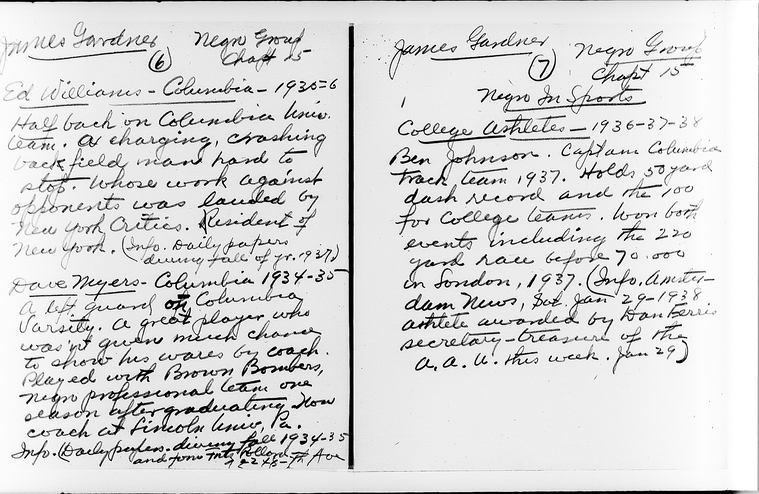 James Gardner Negro Group
(6) Chapt 15
Ed Williams - Columbia - 1935-6
Half back on Columbia Univ.
team. A charging, crashing
back field man hard to
stop. Whose work against
opponents was lauded by
New York Critics. Resident of
New York. (Info. Daily papers
during fall of yr. 1937)
Dave Myers - Columbia 1934-35
A left guard on Columbia
Varsity. A great player who
was'nt given much chance
to show his wares by coach.
Played with Brown Bombers,
Negro professional team one
season after graduating. Now
coach at Lincoln Univ, Pa.
Info. (Daily papers. during fall 1934-35
and from
James Gardner Negro Group
(7) Chapt 15
Negro In Sports
College Athletes - 1936-37-38
Ben Johnson. Captain Columbia
track team 1937. Holds 50 yard
dash record and the 100
for College teams. Won both
events including the 220
yard race before 70.000
in London, 1937. (Info. Amster-
dam News, Sat. Jan 29-1938
athlete awarded by Dan Ferris
secretary-treasure of the
A. A. U. this week. Jan 29)